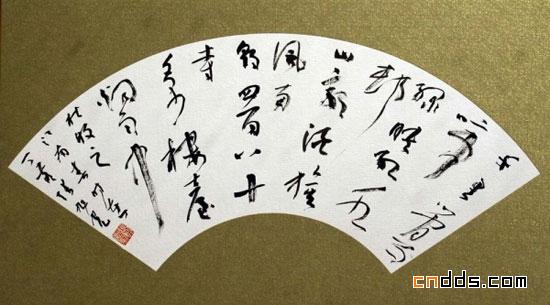 千里鶯啼
綠映紅水
村山郭酒旗
風南
朝四百八十
寺多少樓臺
煙雨中
杜牧之
江南春
cndds.com